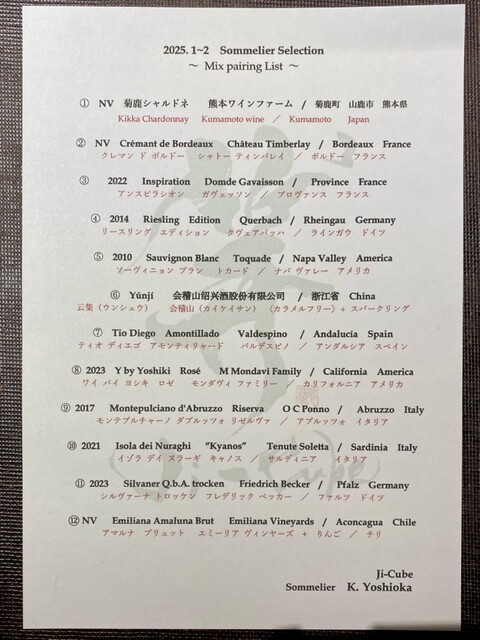 2025. 1~2 Sommelier Selection
～ Mix pairing List ～
① NV 菊鹿シャルドネ 熊本ワインファーム / 菊鹿町 山鹿市 熊本県
Kikka Chardonnay Kumamoto wine ／ Kumamoto Japan
② NV Crémant de Bordeaux Château Timberlay / Bordeaux France
クレマン ド ボルドー シャトー ティンバレイ ／ ボルドー フランス
③ 2022 Inspiration Domde Gavaisson / Province France
アンスピラシオン ガヴェッソン ／ プロヴァンス フランス
④ 2014 Riesling Edition Querbach / Rheingau Germany
リースリング エディション クヴェアバッハ ／ ラインガウ ドイツ
⑤ 2010 Sauvignon Blanc Toquade / Napa Valley America
ソーヴィニョン ブラン トカード ／ ナパ ヴァレー アメリカ
⑥ Yúnjí 会稽山绍兴酒股份有限公司 / 浙江省 China
云集（ウンシュウ） 会稽山（カイケイサン）〈カラメルフリー〉+ スパークリング
⑦ Tio Diego Amontillado Valdespino / Andalucía Spain
ティオ ディエゴ アモンティリャード バルデスピノ ／ アンダルシア スペイン
⑧ 2023 Y by Yoshiki Rosé M Mondavi Family / California America
ワイ バイ ヨシキ ロゼ モンダヴィ ファミリー ／ カリフォルニア アメリカ
⑨ 2017 Montepulciano d'Abruzzo Riserva O C Ponno / Abruzzo Italy
モンテプルチャーノ ダブルッツォ リゼルヴァ ／ アブルッツォ イタリア
⑩ 2021 Isola dei Nuraghi “Kyanos” Tenute Soletta / Sardinia Italy
イゾラ デイ ヌラーギ キャノス ／ サルディニア イタリア
⑪ 2023 Silvaner Q.b.A. trocken Friedrich Becker / Pfalz Germany
シルヴァーナ トロッケン フレデリック ベッカー ／ ファルツ ドイツ
⑫ NV Emiliana Amaluna Brut Emiliana Vineyards / Aconcagua Chile
アマルナ ブリュット エミーリア ヴィンヤーズ + りんご ／ チリ
Ji-Cube
Sommelier K. Yoshioka